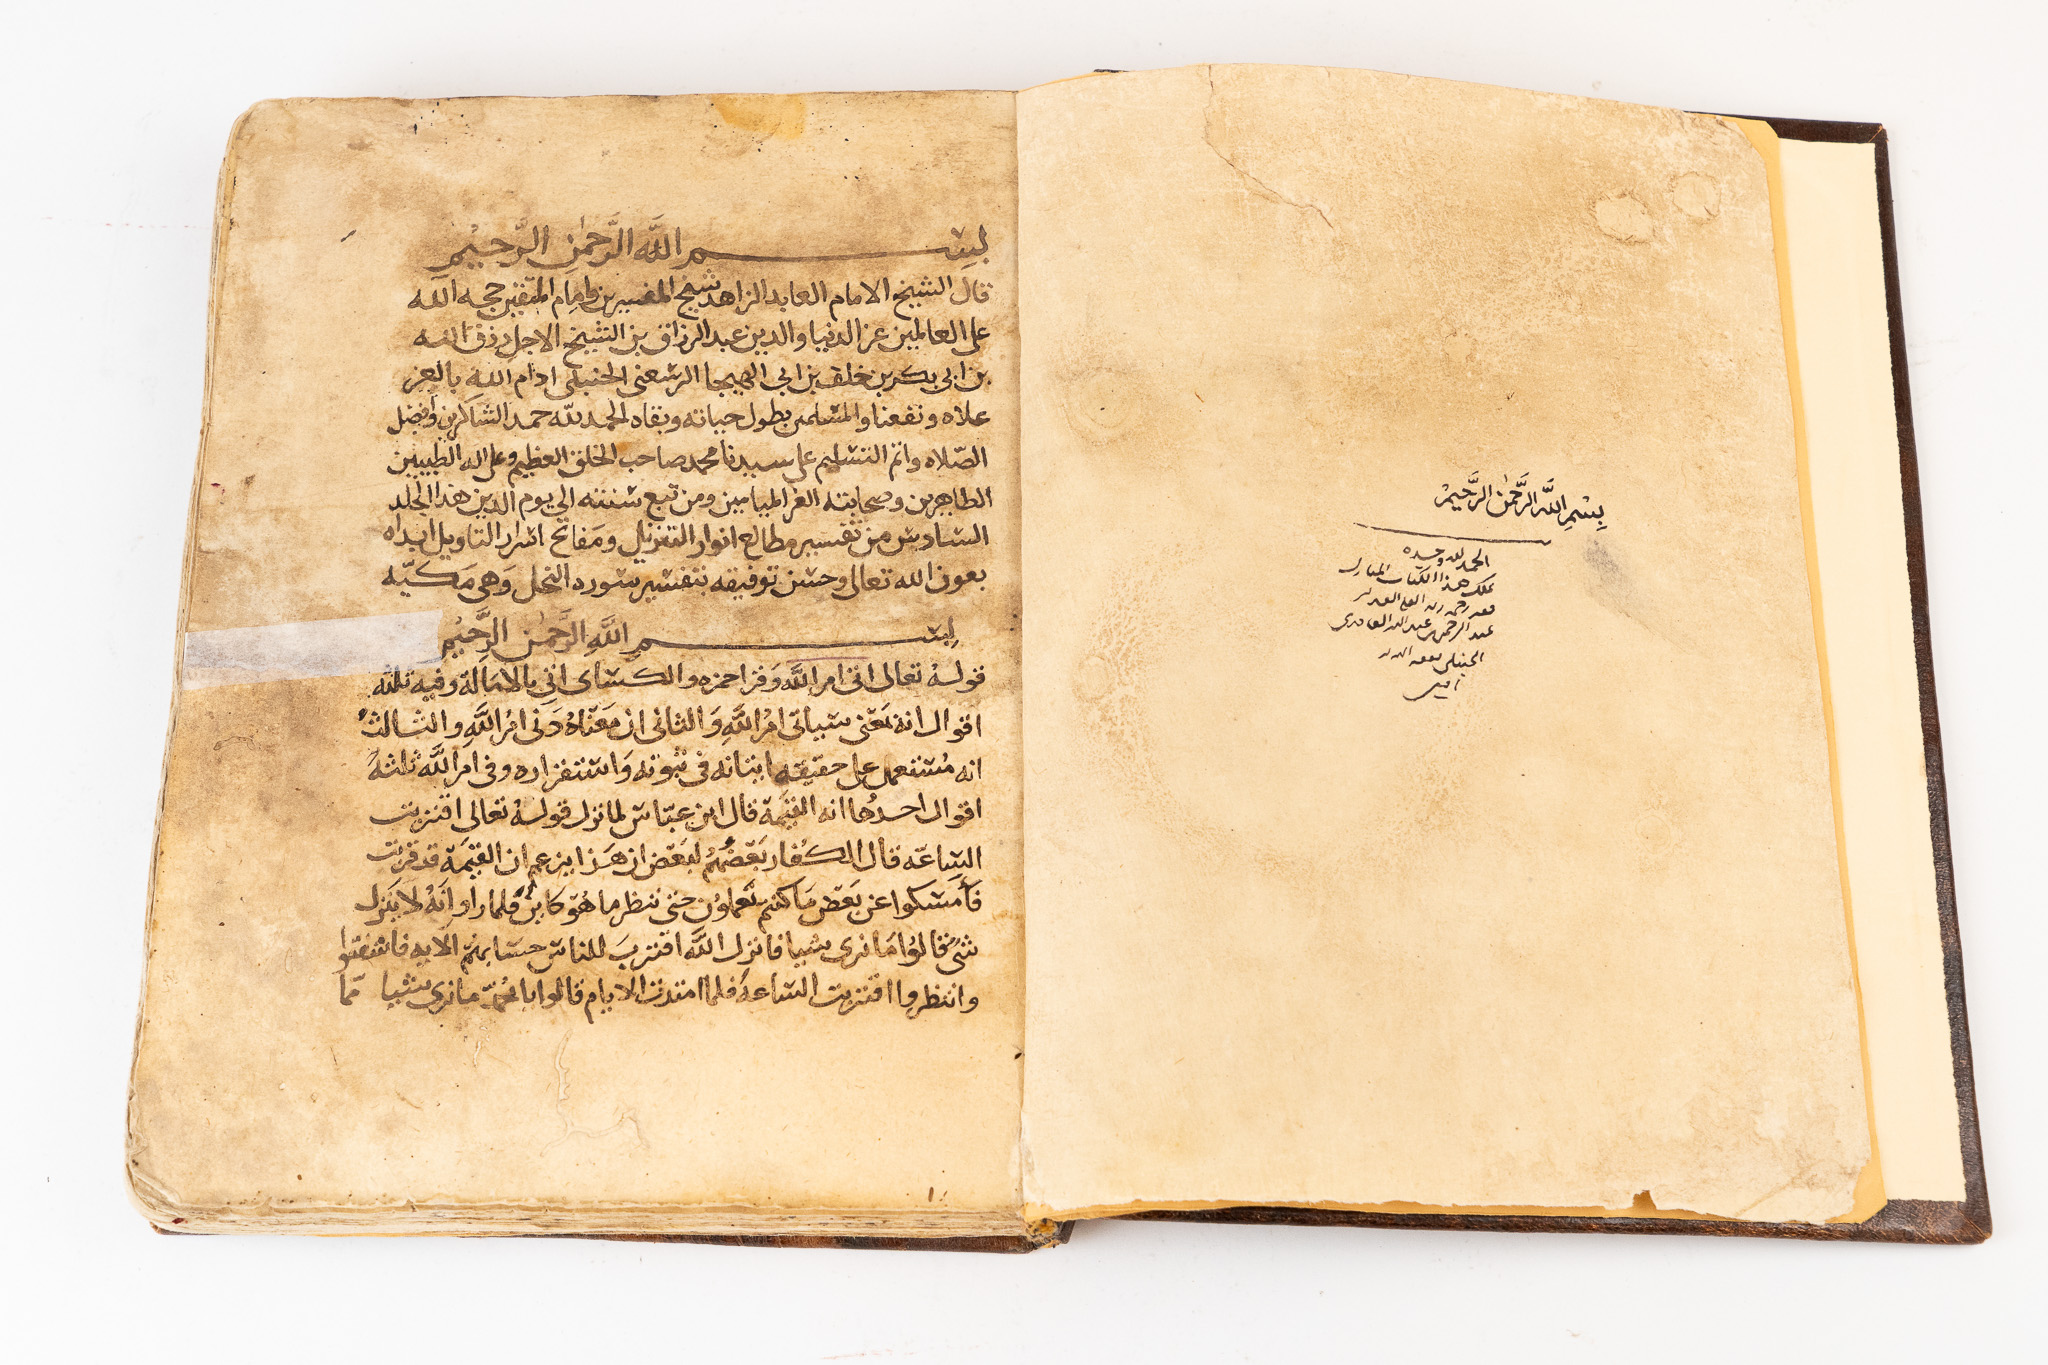 بِسْمِ اللَّه الرَّحْمٰن الرَّحِيْمْ
الحمد لله وحده
ملك هذا الكتاب المبارك
عبد الرحمن بن عبد الله
الحنبلي
امين
بسم اللَّه الرَّحمٰنِ الرَّحيْمِ
قال الشيخ الامام العابد الزاهد شيخ المفسرين وامام المتقين حجه الله
على العالمين عز الدنيا والدين عبد الرزاق بن الشيخ الاجل رزق الله
بن ابي بكر بن خلف بن ابي الهيجا الرسعني الحنبلي ادام الله بالعز
علاه ونفعنا والمسلمين بطول حياته وبقاه الحمد لله حمد الشاكرين وافضل
الصّلاه واتم التسليم على سيدنا محمد صاحب الخلق العظيم وعلى اله الطيبين
الطاهرين وصحابته الغر الميامين ومن تبع سنته الي يوم الدين هذا المجلد
السادس من تفسير مطالع انوار التنزيل ومَفاتح اسرار التاويل ابداه
بعون الله تعالى وحسن توفيقه بتفسير سوره النحل وَهي مَكيّه
بسم اللَّهِ الرَّحمٰن الرَّحِيْم
قولهُ تعالى اتى امر اللَّه وَقرا حمزه والكساى اتي بالامَالة وفيه ثلثه
اقوال انه بمَعْنى سياتي امْرُ اللَّهِ وَالثاني ان مَعْنَاهُ دَنى امْرُ اللَّهِ والثالث
انه مُستعمل على حقيقه اتيانه في ثبوته وَاستقراره وفي امر اللَّه ثلثهُ
اقوال احدُها انه القيٰمَة قال ابن عبّاس لما نزل قولهُ تعالى اقتربت
السّاعَه قال الكُفار بَعْضُهُمْ لبَعْض ان هَذا يزعم ان القيٰمَة قد قربت
فَأمْسكوا عن بَعْض مَا كنتم تَعْملوُن حتى ننظر ما هُوَ كاين فلما راوا انَهُ لا يَنزل
شئ قالوُا مَا نرى شيا فانزل اللَّه اقتربَ للناس حسَابهُمْ الايه فاشفقوا
وانتظروا اقتربت السّاعَهُ فلما امتدت الايام قالوا يا محُمَّد ما نرى شيا مّما